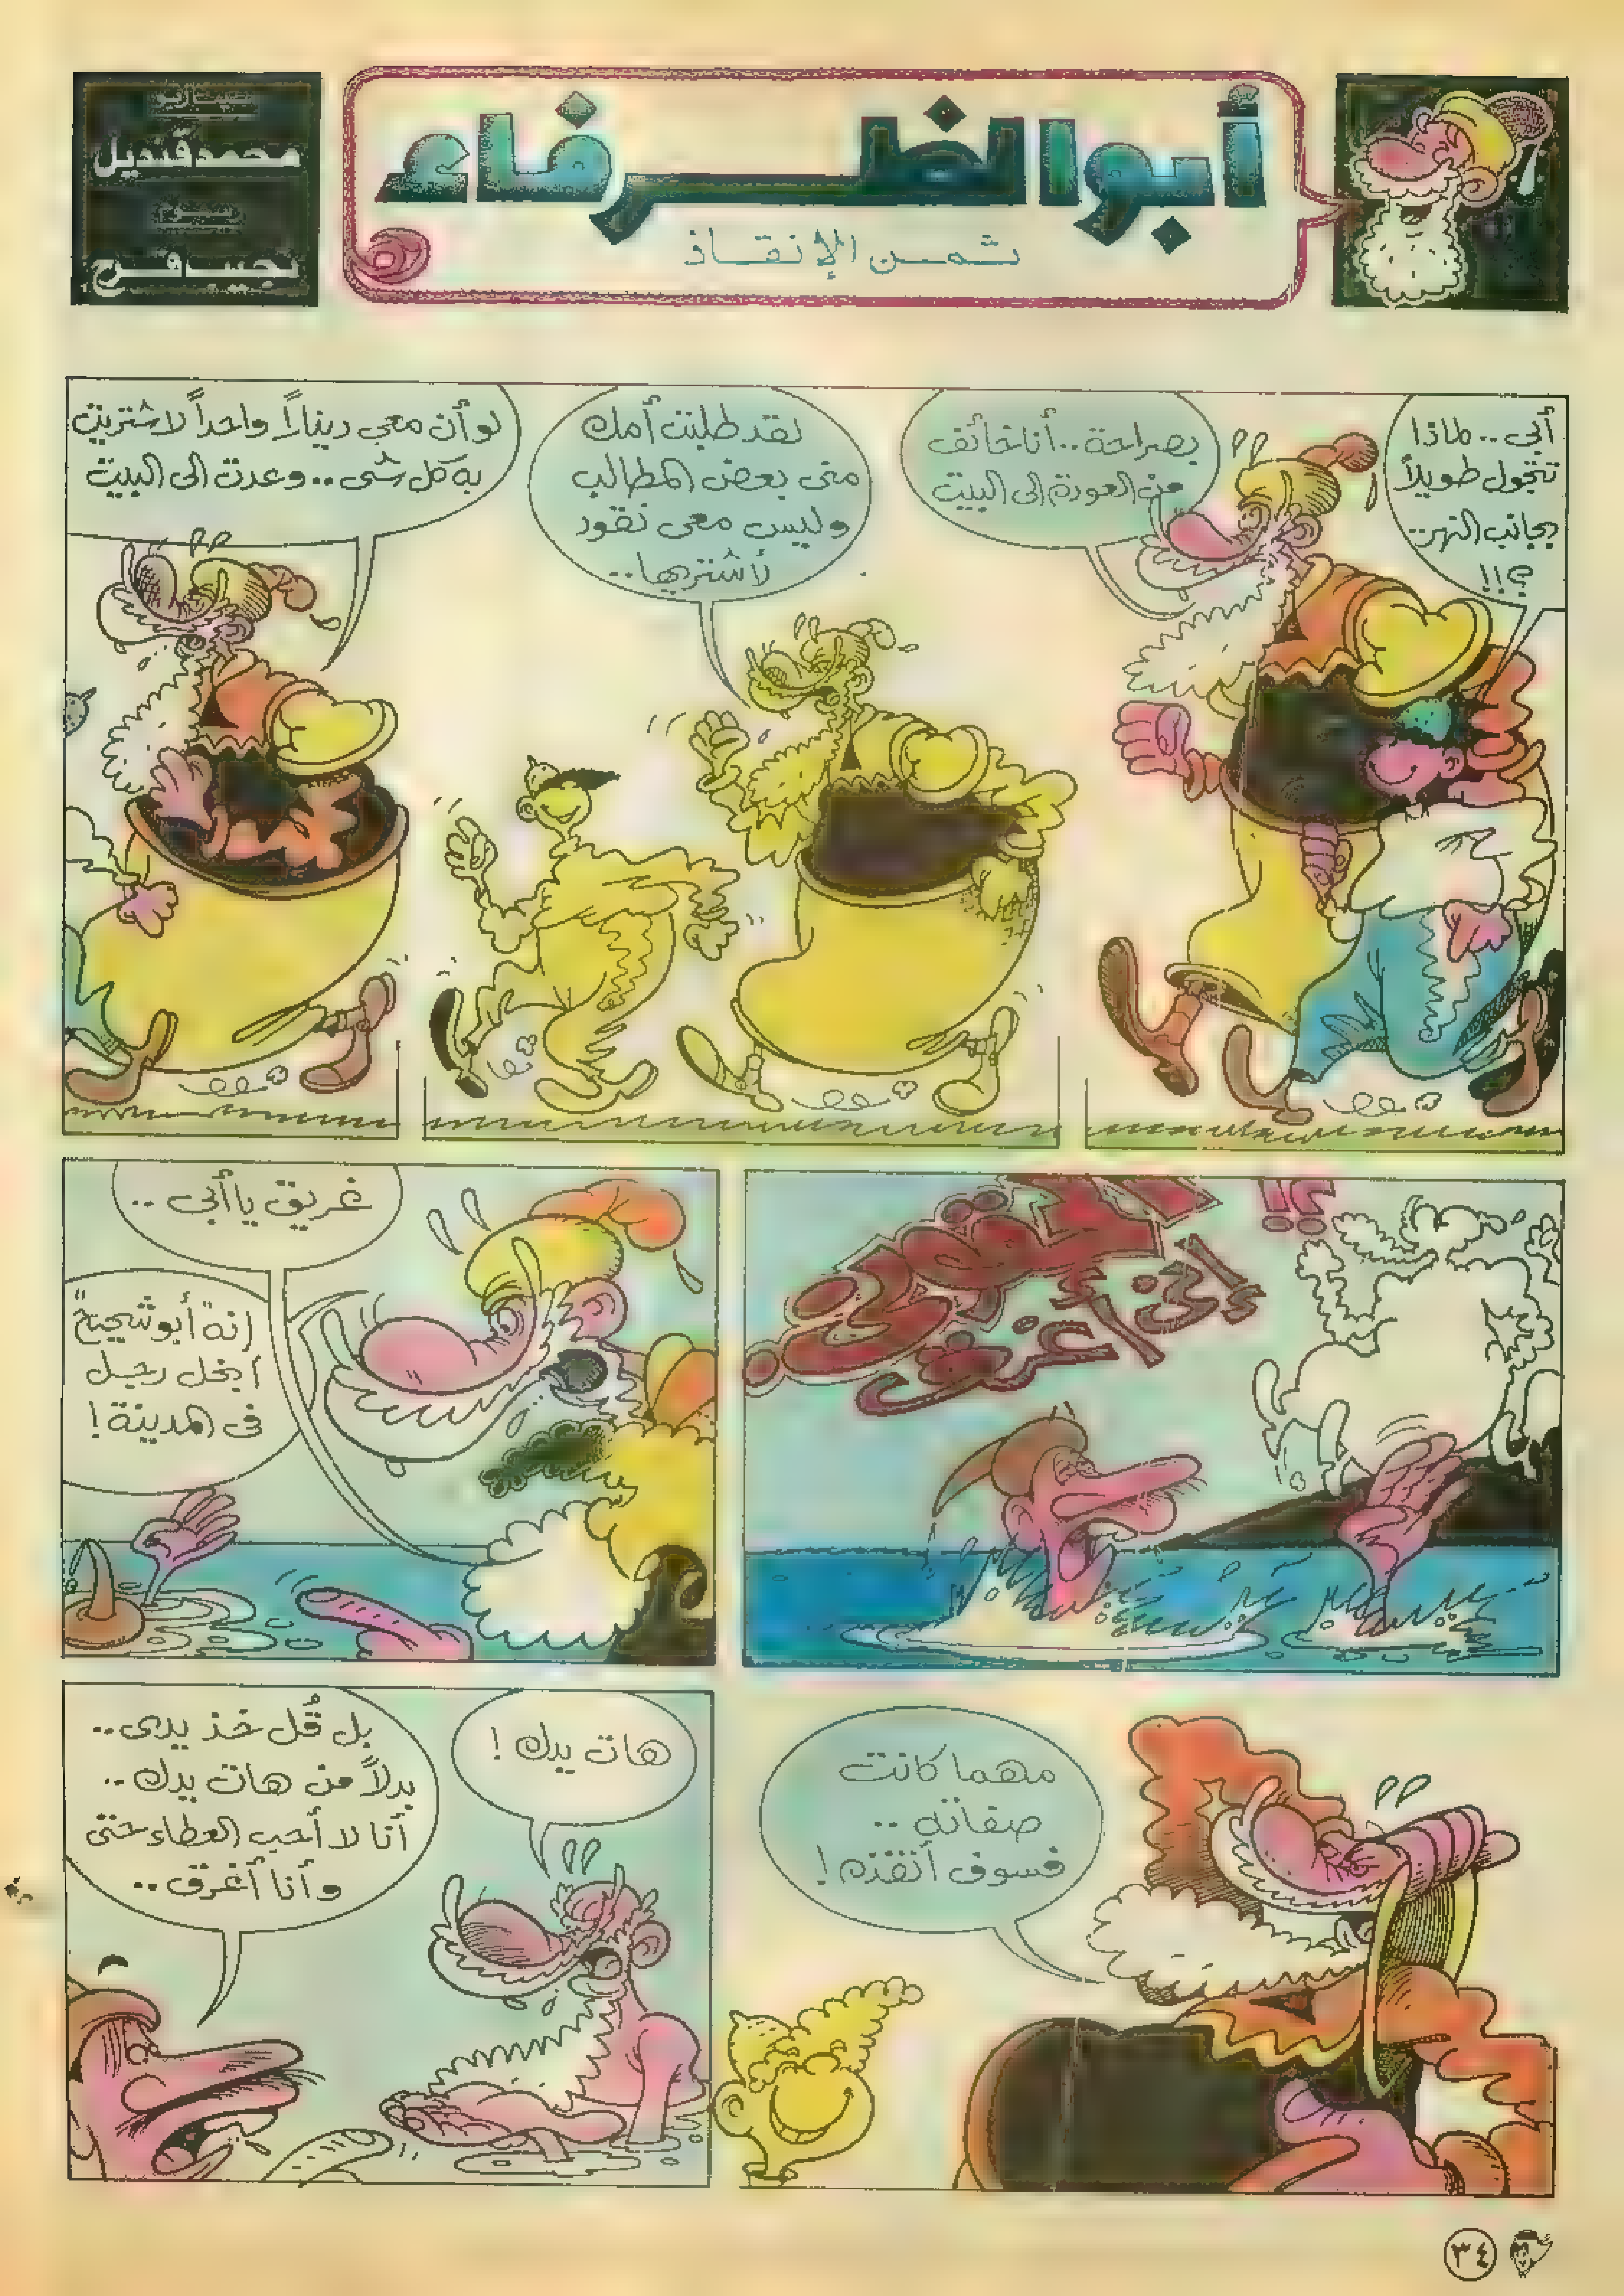 أبو الظرفاء
ثمن الإنقاذ
سيناريو
محمد قنديل
رسوم
نجيب فرح
أبى .. لماذا
تتجول طويلاً
بجانب النهر..
؟!!
بصراحة .. أنا خائف
من العودة إلى البيت
لقد طلبت أمك
منى بعض المطالب
وليس معى نقود
لأشتريها ..
لو أن معى ديناراً واحداً لاشتريت
به كل شىء .. وعدت إلى البيت
إنى أغرق
غريق يا أبى ..
إنه "أبو شحيح"
أبخل رجل
فى المدينة !
مهما كانت
صفاته ..
فسوف أنقذه !
هات يدك !
بل قُل خذ يدى ..
بدلاً من هات يدك ..
أنا لا أحب العطاء حتى
وأنا أغرق ..
٣٤